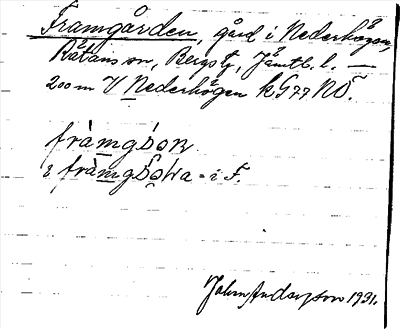 Framgården, gård i Nederhögen,
Rätans sn, Bergs tg, Jämtl. l. —
200 m V Nederhögen kG77NO.
fràmgoɒɴ
i fràmgoɒɴa i F.
John Andersson 1931.